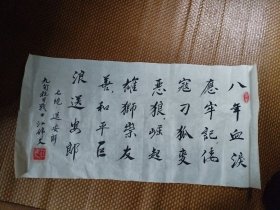 八年血淚
應牢記倭
寇刁狐變
惡狼崛起
雄獅崇友
善和平巨
浪送安郎
七绝 送安郎
九旬抗日